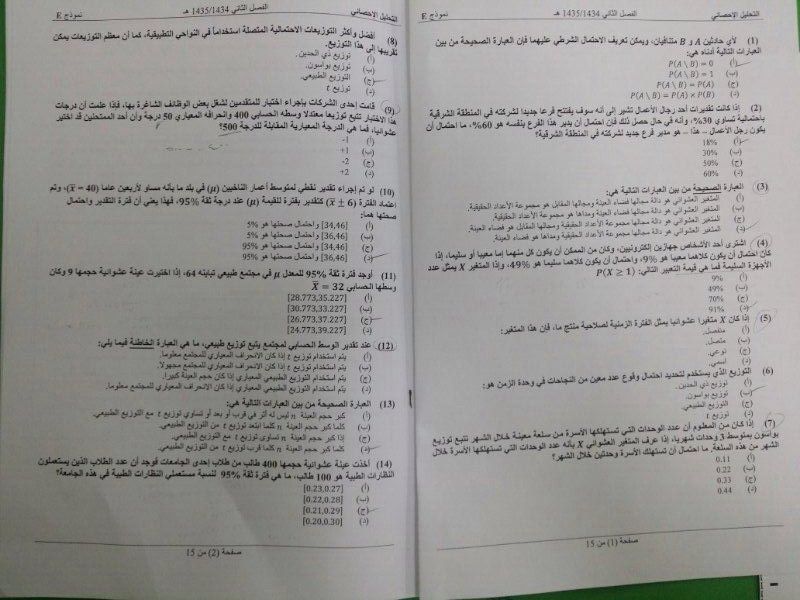 التحليل الإحصائي الفصل الثاني 1435/1434 هـ نموذج E
(1) لأي حادثين A و B متنافيان، ويمكن تعريف الاحتمال الشرطي عليهما فإن العبارة الصحيحة من بين
العبارات التالية أدناه هي:
(أ) P(A \ B) = 0
(ب) P(A \ B) = 1
(ج) P(A \ B) = P(A)
(د) P(A \ B) = P(A) × P(B)
(2) إذا كانت تقديرات أحد رجال الأعمال تشير إلى أنه سوف يفتتح فرعا جديدا لشركته في المنطقة الشرقية
باحتمالية تساوي 30%، وأنه في حال حصل ذلك فإن احتمال أن يدير هذا الفرع بنفسه هو 60%، ما احتمال أن
يكون رجل الأعمال – هذا – هو مدير فرع جديد لشركته في المنطقة الشرقية؟
(أ) 18%
(ب) 30%
(ج) 50%
(د) 60%
(3) العبارة الصحيحة من بين العبارات التالية هي:
(أ) المتغير العشوائي هو دالة مجالها فضاء العينة ومجالها المقابل هو مجموعة الأعداد الحقيقية.
(ب) المتغير العشوائي هو دالة مجالها فضاء العينة ومداها هو مجموعة الأعداد الحقيقية.
(ج) المتغير العشوائي هو دالة مجالها مجموعة الأعداد الحقيقية ومجالها المقابل هو فضاء العينة.
(د) المتغير العشوائي هو دالة مجالها مجموعة الأعداد الحقيقية ومداها هو فضاء العينة.
(4) اشترى أحد الأشخاص جهازين إلكترونيين، وكان من الممكن أن يكون كل منهما إما معيبا أو سليما، إذا
كان احتمال أن يكون كلاهما معيبا هو 9%، واحتمال أن يكون كلاهما سليما هو 49%، وإذا المتغير X يمثل عدد
الأجهزة السليمة فما هي قيمة التعبير التالي: P(X ≥ 1)؟
(أ) 9%
(ب) 49%
(ج) 70%
(د) 91%
(5) إذا كان X متغيرا عشوائيا يمثل الفترة الزمنية لصلاحية منتج ما، فإن هذا المتغير:
(أ) منفصل.
(ب) متصل.
(ج) نوعي.
(د) اسمي.
(6) التوزيع الذي يستخدم لتحديد احتمال وقوع عدد معين من النجاحات في وحدة الزمن هو:
(أ) توزيع ذي الحدين.
(ب) توزيع بواسون.
(ج) التوزيع الطبيعي.
(د) توزيع t
(7) إذا كان من المعلوم أن عدد الوحدات التي تستهلكها الأسرة من سلعة معينة خلال الشهر تتبع توزيع
بواسون بمتوسط 3 وحدات شهريا، إذا عرف المتغير العشوائي X بأنه عدد الوحدات التي تستهلكها الأسرة خلال
الشهر من هذه السلعة. ما احتمال أن تستهلك الأسرة وحدتين خلال الشهر؟
(أ) 0.11
(ب) 0.22
(ج) 0.33
(د) 0.44
صفحة (1) من 15
التحليل الإحصائي الفصل الثاني 1435/1434 هـ نموذج E
(8) أفضل وأكثر التوزيعات الاحتمالية المتصلة استخداماً في النواحي التطبيقية، كما أن معظم التوزيعات يمكن
تقريبها إلى هذا التوزيع.
(أ) توزيع ذي الحدين.
(ب) توزيع بواسون.
(ج) التوزيع الطبيعي.
(د) توزيع t
(9) قامت إحدى الشركات بإجراء اختبار للمتقدمين لشغل بعض الوظائف الشاغرة بها، فإذا علمت أن درجات
هذا الاختبار تتبع توزيعها معتدلا وسطه الحسابي 400 وانحرافه المعياري 50 درجة وأن أحد الممتحلين قد اختير
عشوائيا، فما هي الدرجة المعيارية المقابلة للدرجة 500؟
(أ) -1
(ب) +1
(ج) -2
(د) +2
(10) لو تم إجراء تقدير نقطي لمتوسط أعمار الناخبين (μ) في بلد ما بأنه مساو لأربعين عاما (x̄ = 40)، وتم
اعتماد الفترة (x̄ ± 6) كتقدير بفترة للقيمة (μ) عند درجة ثقة 95%، فهذا يعني أن فترة التقدير واحتمال
صحتها هما:
(أ) [34,46] واحتمال صحتها هو 5%
(ب) [36,46] واحتمال صحتها هو 5%
(ج) [34,46] واحتمال صحتها هو 95%
(د) [36,46] واحتمال صحتها هو 95%
(11) أوجد فترة ثقة 95% للمعدل μ في مجتمع طبيعي تباينه 64، إذا اختيرت عينة عشوائية حجمها 9 وكان
وسطها الحسابي X̄ = 32
(أ) [28.773,35.227]
(ب) [30.773,33.227]
(ج) [26.773,37.227]
(د) [24.773,39.227]
(12) عند تقدير الوسط الحسابي لمجتمع يتبع توزيع طبيعي، ما هي العبارة الخاطئة فيما يلي:
(أ) يتم استخدام توزيع t إذا كان الانحراف المعياري للمجتمع معلوما.
(ب) يتم استخدام توزيع t إذا كان الانحراف المعياري للمجتمع مجهولا.
(ج) يتم استخدام التوزيع الطبيعي المعياري إذا كان حجم العينة كبيرا.
(د) يتم استخدام التوزيع الطبيعي المعياري إذا كان الانحراف المعياري للمجتمع معلوما.
(13) العبارة الصحيحة من بين العبارات التالية هي:
(أ) كبر حجم العينة n ليس له أثر في قرب أو بعد أو تساوي توزيع t مع التوزيع الطبيعي.
(ب) كلما كبر حجم العينة n كلما ابتعد توزيع t من التوزيع الطبيعي.
(ج) إذا كبر حجم العينة n تساوى توزيع t مع التوزيع الطبيعي.
(د) كلما كبر حجم العينة n كلما قرب توزيع t من التوزيع الطبيعي.
(14) أخذت عينة عشوائية حجمها 400 طالب من طلاب إحدى الجامعات فوجد أن عدد الطلاب الذين يستعملون
النظارات الطبية هو 100 طالب، ما هي فترة ثقة 95% لنسبة مستعملي النظارات الطبية في هذه الجامعة؟
(أ) [0.23,0.27]
(ب) [0.22,0.28]
(ج) [0.21,0.29]
(د) [0.20,0.30]
صفحة (2) من 15